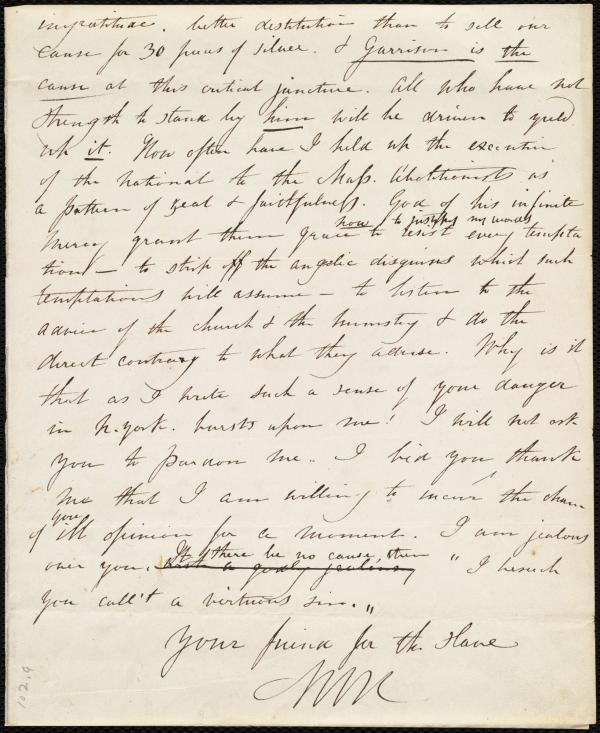 ingratitude. better destitution than to sell our
cause for 30 pieces of silver. & Garrison is the
cause at this critical juncture. All who have not
strength to stand by him will be driven to yield
up it. How often have I held up the executive
of the national to the Mass. Abolitionists as
a pattern of zeal & faithfulness. God of his infinite
now to justify my words
mercy grant them grace to resist every tempta
tion — to strip off the angelic disguises which such
temptations will assume — to listen to the
advice of the church & the ministry & do the
direct contrary to what they advise. Why is it
that as I write such a sense of your danger
in N. York. bursts upon me! I will not ask
you to pardon me. I bid you thank
me that I am willing to incur the chance
your
of ill opinion for a moment. I am jealous
If there be no cause, then
over you. with a godly jealousy "I beseech
you call't a virtuous sin."
Your friend for the Slave
MWC
102.9